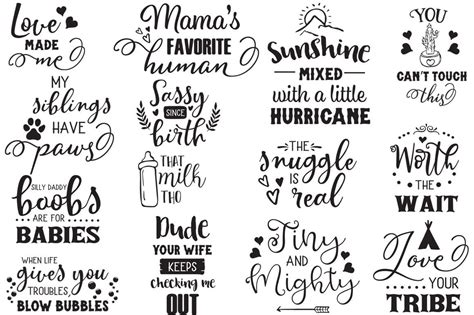 Love
MADE
me
MY
siblings
HAVE
paws
SILLY DADDY
boobs
ARE FOR
BABIES
WHEN LIFE
gives you
TROUBLES,
BLOW BUBBLES
Mama's
FAVORITE
human
Sassy
SINCE
birth
THAT
milk
THO
Dude
YOUR WIFE
KEEPS
checking me
OUT
Sunshine
MIXED
with a little
HURRICANE
The
snuggle
is
real
Tiny
AND
Mighty
YOU
CAN'T TOUCH
this
Worth
THE
WAIT
Love
YOUR
TRIBE